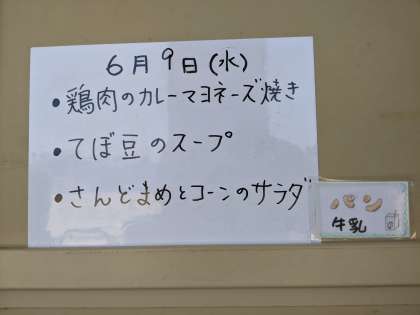 6月9日(水)
•鶏肉のカレーマヨネーズ焼き
•てぼ豆のスープ
•さんどまめとコーンのサラダ
パン
牛乳